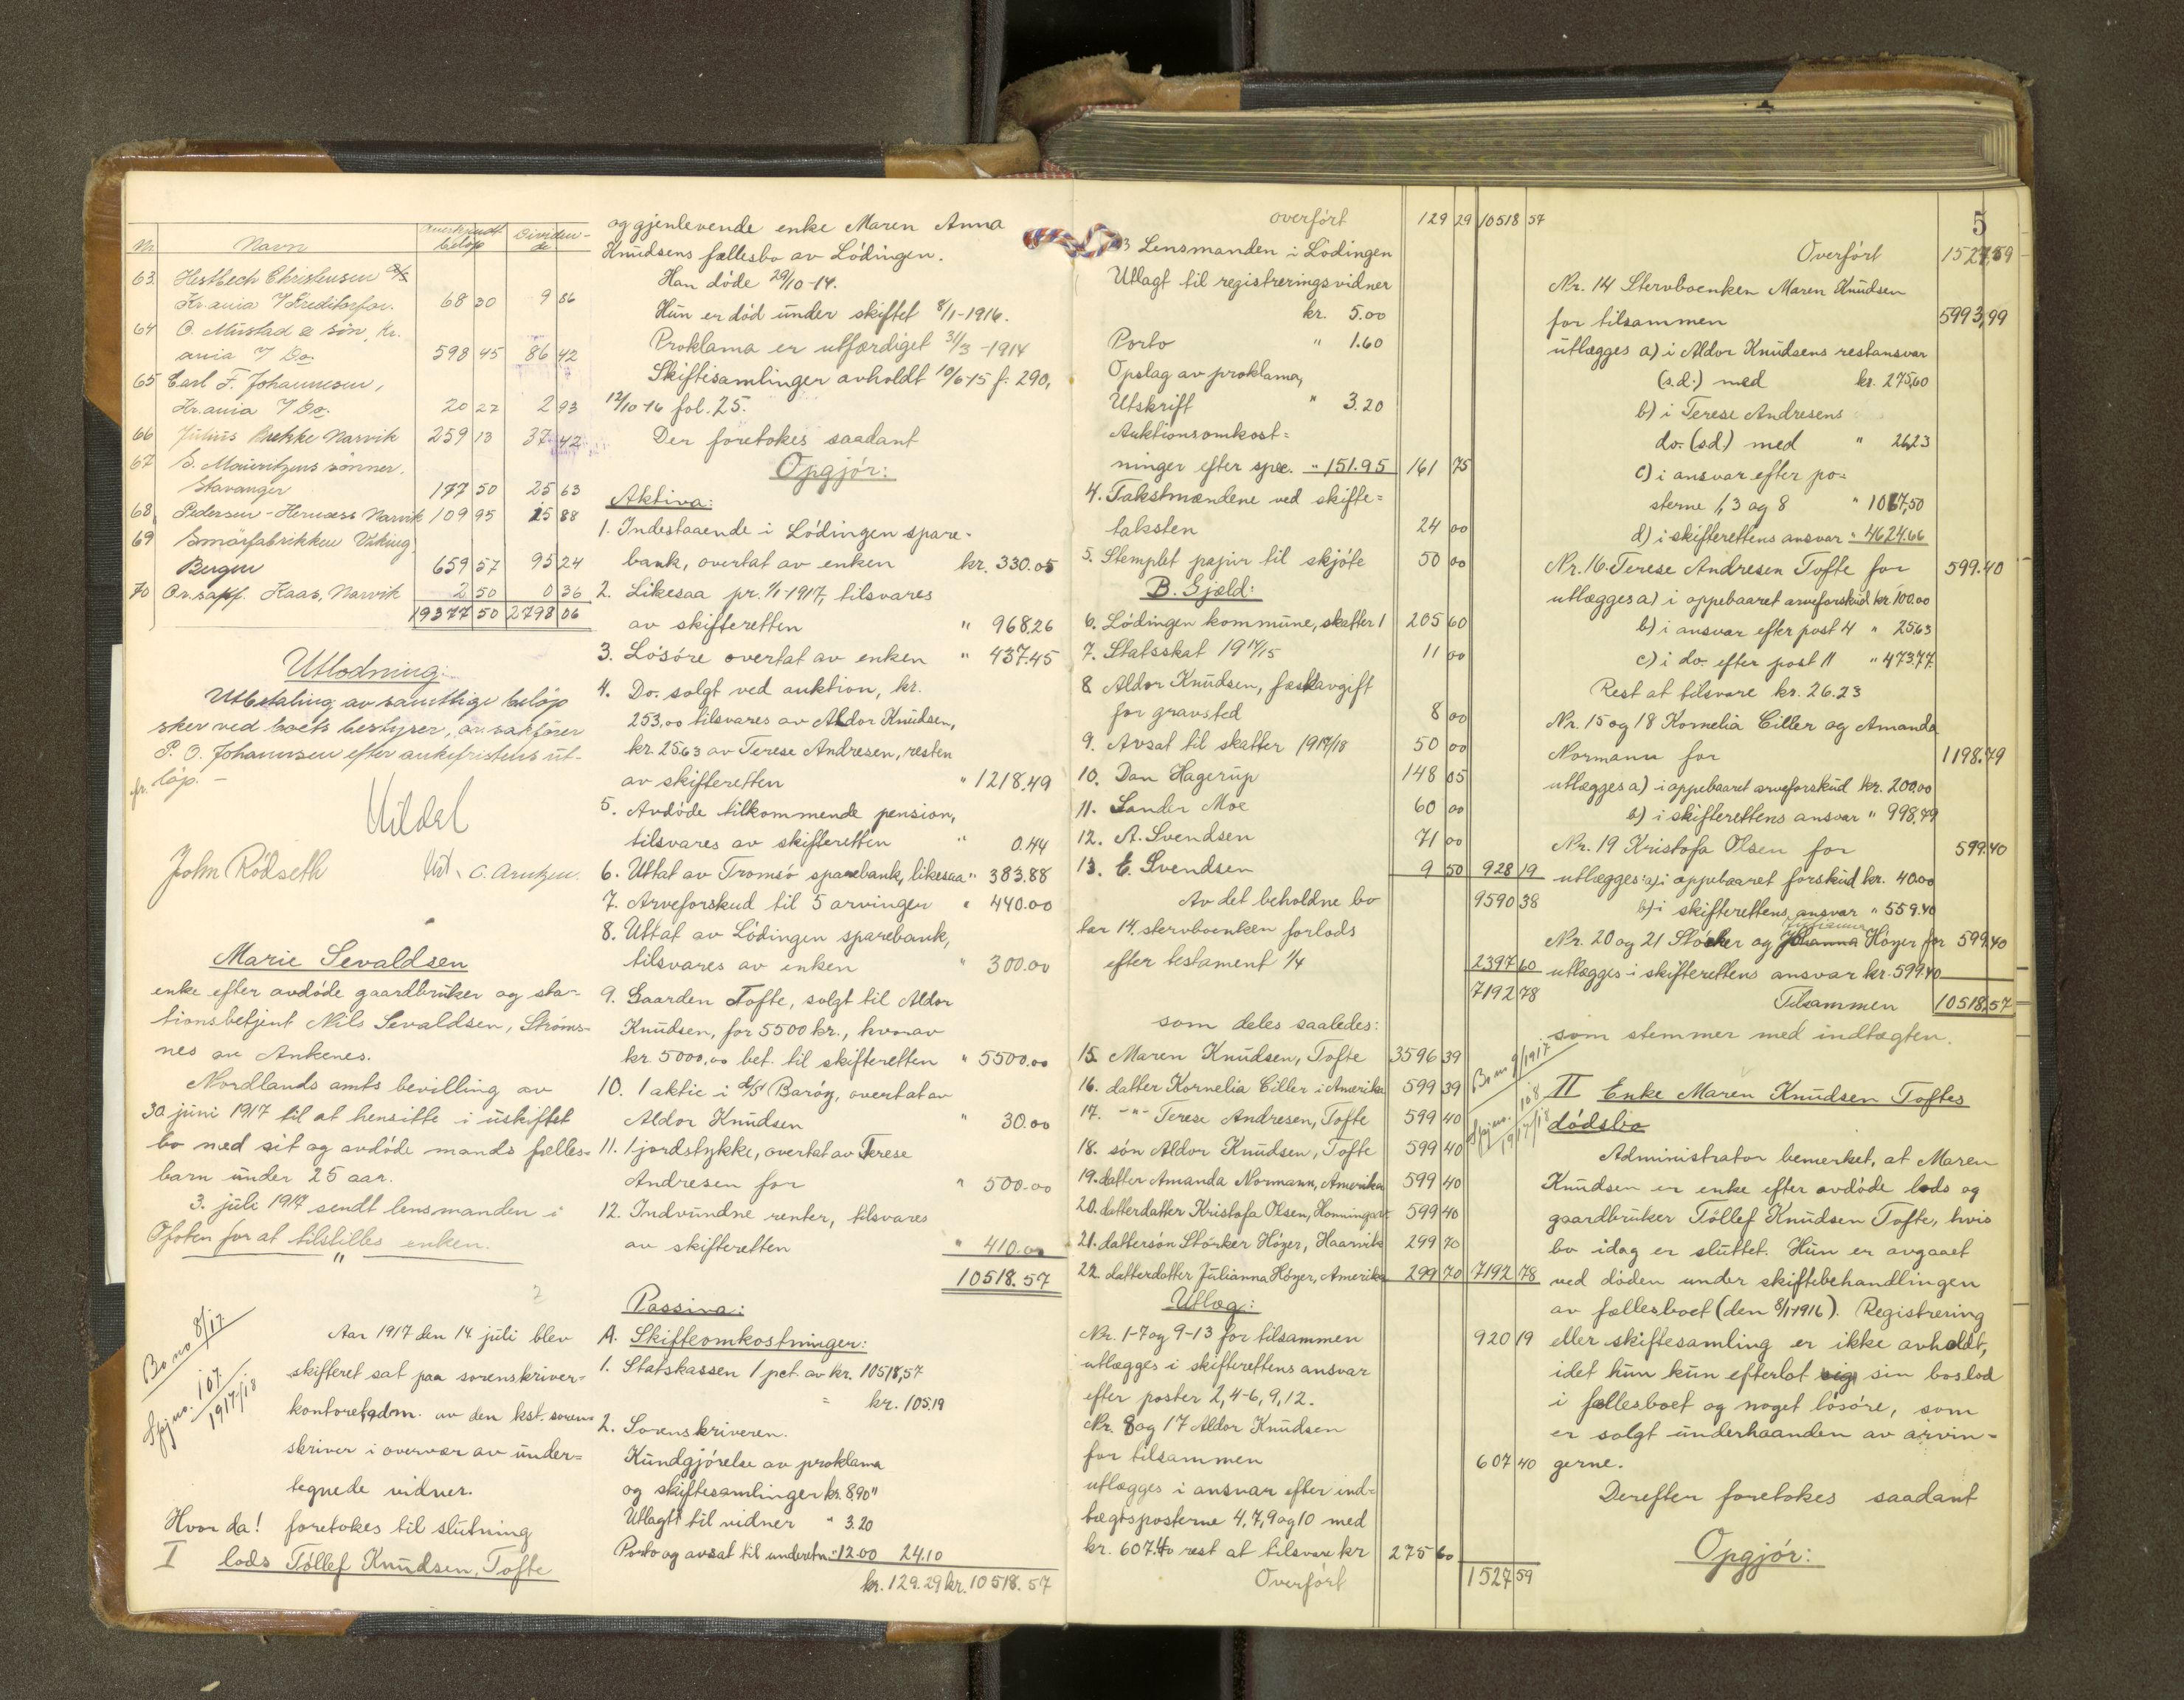 Nr. Navn Anerkjendt beløp Dividende
63 Hestbech Christensen A/S
Kr.ania v/ Kreditorfor. 68 30 9 86
64 O. Mustad & søn, Kr.
ania v/ Do. 598 45 86 42
65 Carl F. Johannesen,
Kr.ania v/ Do. 20 27 2 93
66 Julius Brekke Narvik 259 13 37 42
67 S. Mauritzens sønner,
Stavanger 177 50 25 63
68 Pedersen-Hernæss Narvik 109 95 15 88
69 Smørfabrikken Viking
Bergen 659 57 95 24
70 O.r.sakf. Haas, Narvik 2 50 0 36
19377 50 2798 06
Utlodning:
Utbetaling av samtlige beløp
sker ved boets bestyrer, o.r.sakfører
P. O. Johannesen efter ankefristens ut-
løp. –
Mildal
John Rødseth C. Arntzen.
Marie Sevaldsen
enke efter avdøde gaardbruker og sta-
tionsbetjent Nils Sevaldsen, Strøms-
nes av Ankenes.
Nordlands amts bevilling av
30 juni 1917 til at hensitte i uskiftet
bo med sit og avdøde mands fælles-
barn under 25 aar.
3. juli 1917 sendt lensmanden i
Ofoten for at tilstilles enken.
"
Bo no 8/17
Skj.no. 107 1917/18
Aar 1917 den 14 juli blev
skifteret sat paa sorenskriver-
kontoret, adm. av den kst. soren-
skriver i overvær av under-
tegnede vidner.
Hvor da! foretokes til slutning
I lods Tøllef Knudsen, Tofte
og gjenlevende enke Maren Anna
Knudsens fællesbo av Lødingen.
Han døde 29/10-14.
Hun er død under skiftet 8/1-1916.
Proklama er utfærdiget 31/3-1914
Skiftesamlinger avholdt 10/6-15 f. 290,
12/10-16 fol. 25.
Der foretokes saadant
Opgjør:
Aktiva:
1. Indestaaende i Lødingen spare-
bank, overtat av enken kr. 330.05
2. Likesaa pr. 1/1-1917, tilsvares
av skifteretten " 968.26
3. Løsøre overtat av enken " 437.45
4. Do. solgt ved auktion, kr.
253,00 tilsvares av Aldor Knudsen,
kr. 25.63 av Terese Andresen, resten
av skifteretten " 1218.49
5. Avdøde tilkommende pension,
tilsvares av skifteretten " 0.44
6. Uttat av Tromsø sparebank, likesaa " 383.88
7. Arveforskud til 5 arvingen " 440.00
8. Uttat av Lødingen sparebank,
tilsvares av enken " 300.00
9. Gaarden Tofte, solgt til Aldor
Knudsen, for 5500 kr., hvorav
kr. 5000,00 bet. til skifteretten " 5500.00
10. 1 aktie i d/s Barøy, overtat av
Aldor Knudsen " 30.00
11. 1 jordstykke, overtat av Terese
Andresen for " 500.00
12. Indvundne renter, tilsvares
av skifteretten " 410.00
10518.57
Passiva:
A. Skifteomkostninger:
1. Statskassen 1 pct. av kr. 10518,57
= kr. 105.19
2. Sorenskriveren.
Kundgjørelse av proklama
og skiftesamlinger kr. 8.90"
Utlagt til vidner " 3.20
Porto og avsat til underetn. " 12.00 24.10
kr. 129.29 kr. 10518.57
overført 129 29 10518 57
3 Lensmanden i Lødingen
Utlagt til registreringsvidner
kr. 5.00
Porto " 1.60
Opslag av proklama,
Utskrift " 3.20
Auktionsomkost=
ninger efter spec. " 151.95 161 75
4. Takstmændene ved skifte=
taksten 24 00
5. Stemplet papir til skjøte 50 00
B. Gjæld:
6. Lødingen kommune, skatter 1 205 60
7. Statsskat 1914/15 11 00
8 Aldor Knudsen, fæstavgift
for gravsted 8 00
9. Avsat til skatter 1917/18 50 00
10. Dan Hagerup 148 05
11. Sander Moe 60 00
12. A. Svendsen 71 00
13. E. Svendsen 9 50 928 19
Av det beholdne bo 9590 38
tar 14. stervboenken forlods
efter testament 1/4 2397 60
7192 78
som deles saaledes:
15. Maren Knudsen, Tofte 3596 39
16. datter Kornelia Ciller i Amerika 599 39
17. -"- Terese Andresen, Tofte 599 40
18. søn Aldor Knudsen, Tofte 599 40
19. datter Amanda Normann, Amerika 599 40
20. datterdatter Kristofa Olsen, Honningsv. 599 40
21. dattersøn Størker Høyer, Haarvik 299 70
22. datterdatter Julianna Høyer, Amerika 299 70 7192 78
Utlæg:
Nr. 1-7 og 9-13 for tilsammen 920 19
utlægges i skifterettens ansvar
efter poster 2, 4-6, 9, 12.
Nr. 8 og 17 Aldor Knudsen
for tilsammen 607 40
utlægges i ansvar efter ind=
tægtsposterne 4, 7, 9 og 10 med
kr. 607.40 rest at tilsvare kr 275 60
Overført 1527 59
5
Overført 1527,59
Nr. 14 Stervboenken Maren Knudsen
for tilsammen 5993,99
utlægges a) i Aldor Knudsens restansvar
(s.d.) med kr. 275,60
b) i Terese Andresens
do. (s.d.) med " 26,23
c) i ansvar efter po=
sterne 1, 3 og 8 " 1067,50
d) i skifterettens ansvar " 4624.66
Nr. 16. Terese Andresen Tofte for 599.40
utlægges a) i oppebaaret arveforskud kr. 100.00
b) i ansvar efter post 4 " 25.63
c) i do. efter post 11 " 473.77
Rest at tilsvare kr. 26.23
Nr. 15 og 18 Kornelia Ciller og Amanda
Normann for 1198.79
utlægges a) i oppebaaret arveforskud kr. 200.00
b) i skifterettens ansvar " 998.79
Nr. 19 Kristofa Olsen for 599.40
utlægges: a) i oppebaaret forskud kr. 40.00
b) i skifterettens ansvar " 559.40
Nr. 20 og 21 Størker og Johanna Høyer for 599.40
utlægges i skifterettens ansvar kr. 599.40
Tilsammen 10518,57
som stemmer med indtægten.
Bo no 9/1917
Skj.no. 108 1917/18
II Enke Maren Knudsen Toftes
dødsbo
Administrator bemerket, at Maren
Knudsen er enke efter avdøde lods og
gaardbruker Tøllef Knudsen Tofte, hvis
bo idag er sluttet. Hun er avgaaet
ved døden under skiftebehandlingen
av fællesboet (den 8/1-1916). Registrering
eller skiftesamling er ikke avholdt,
idet hun kun efterlot sig sin boslod
i fællesboet og noget løsøre, som
er solgt underhaanden av arvin-
gerne.
Derefter foretokes saadant
Opgjør: